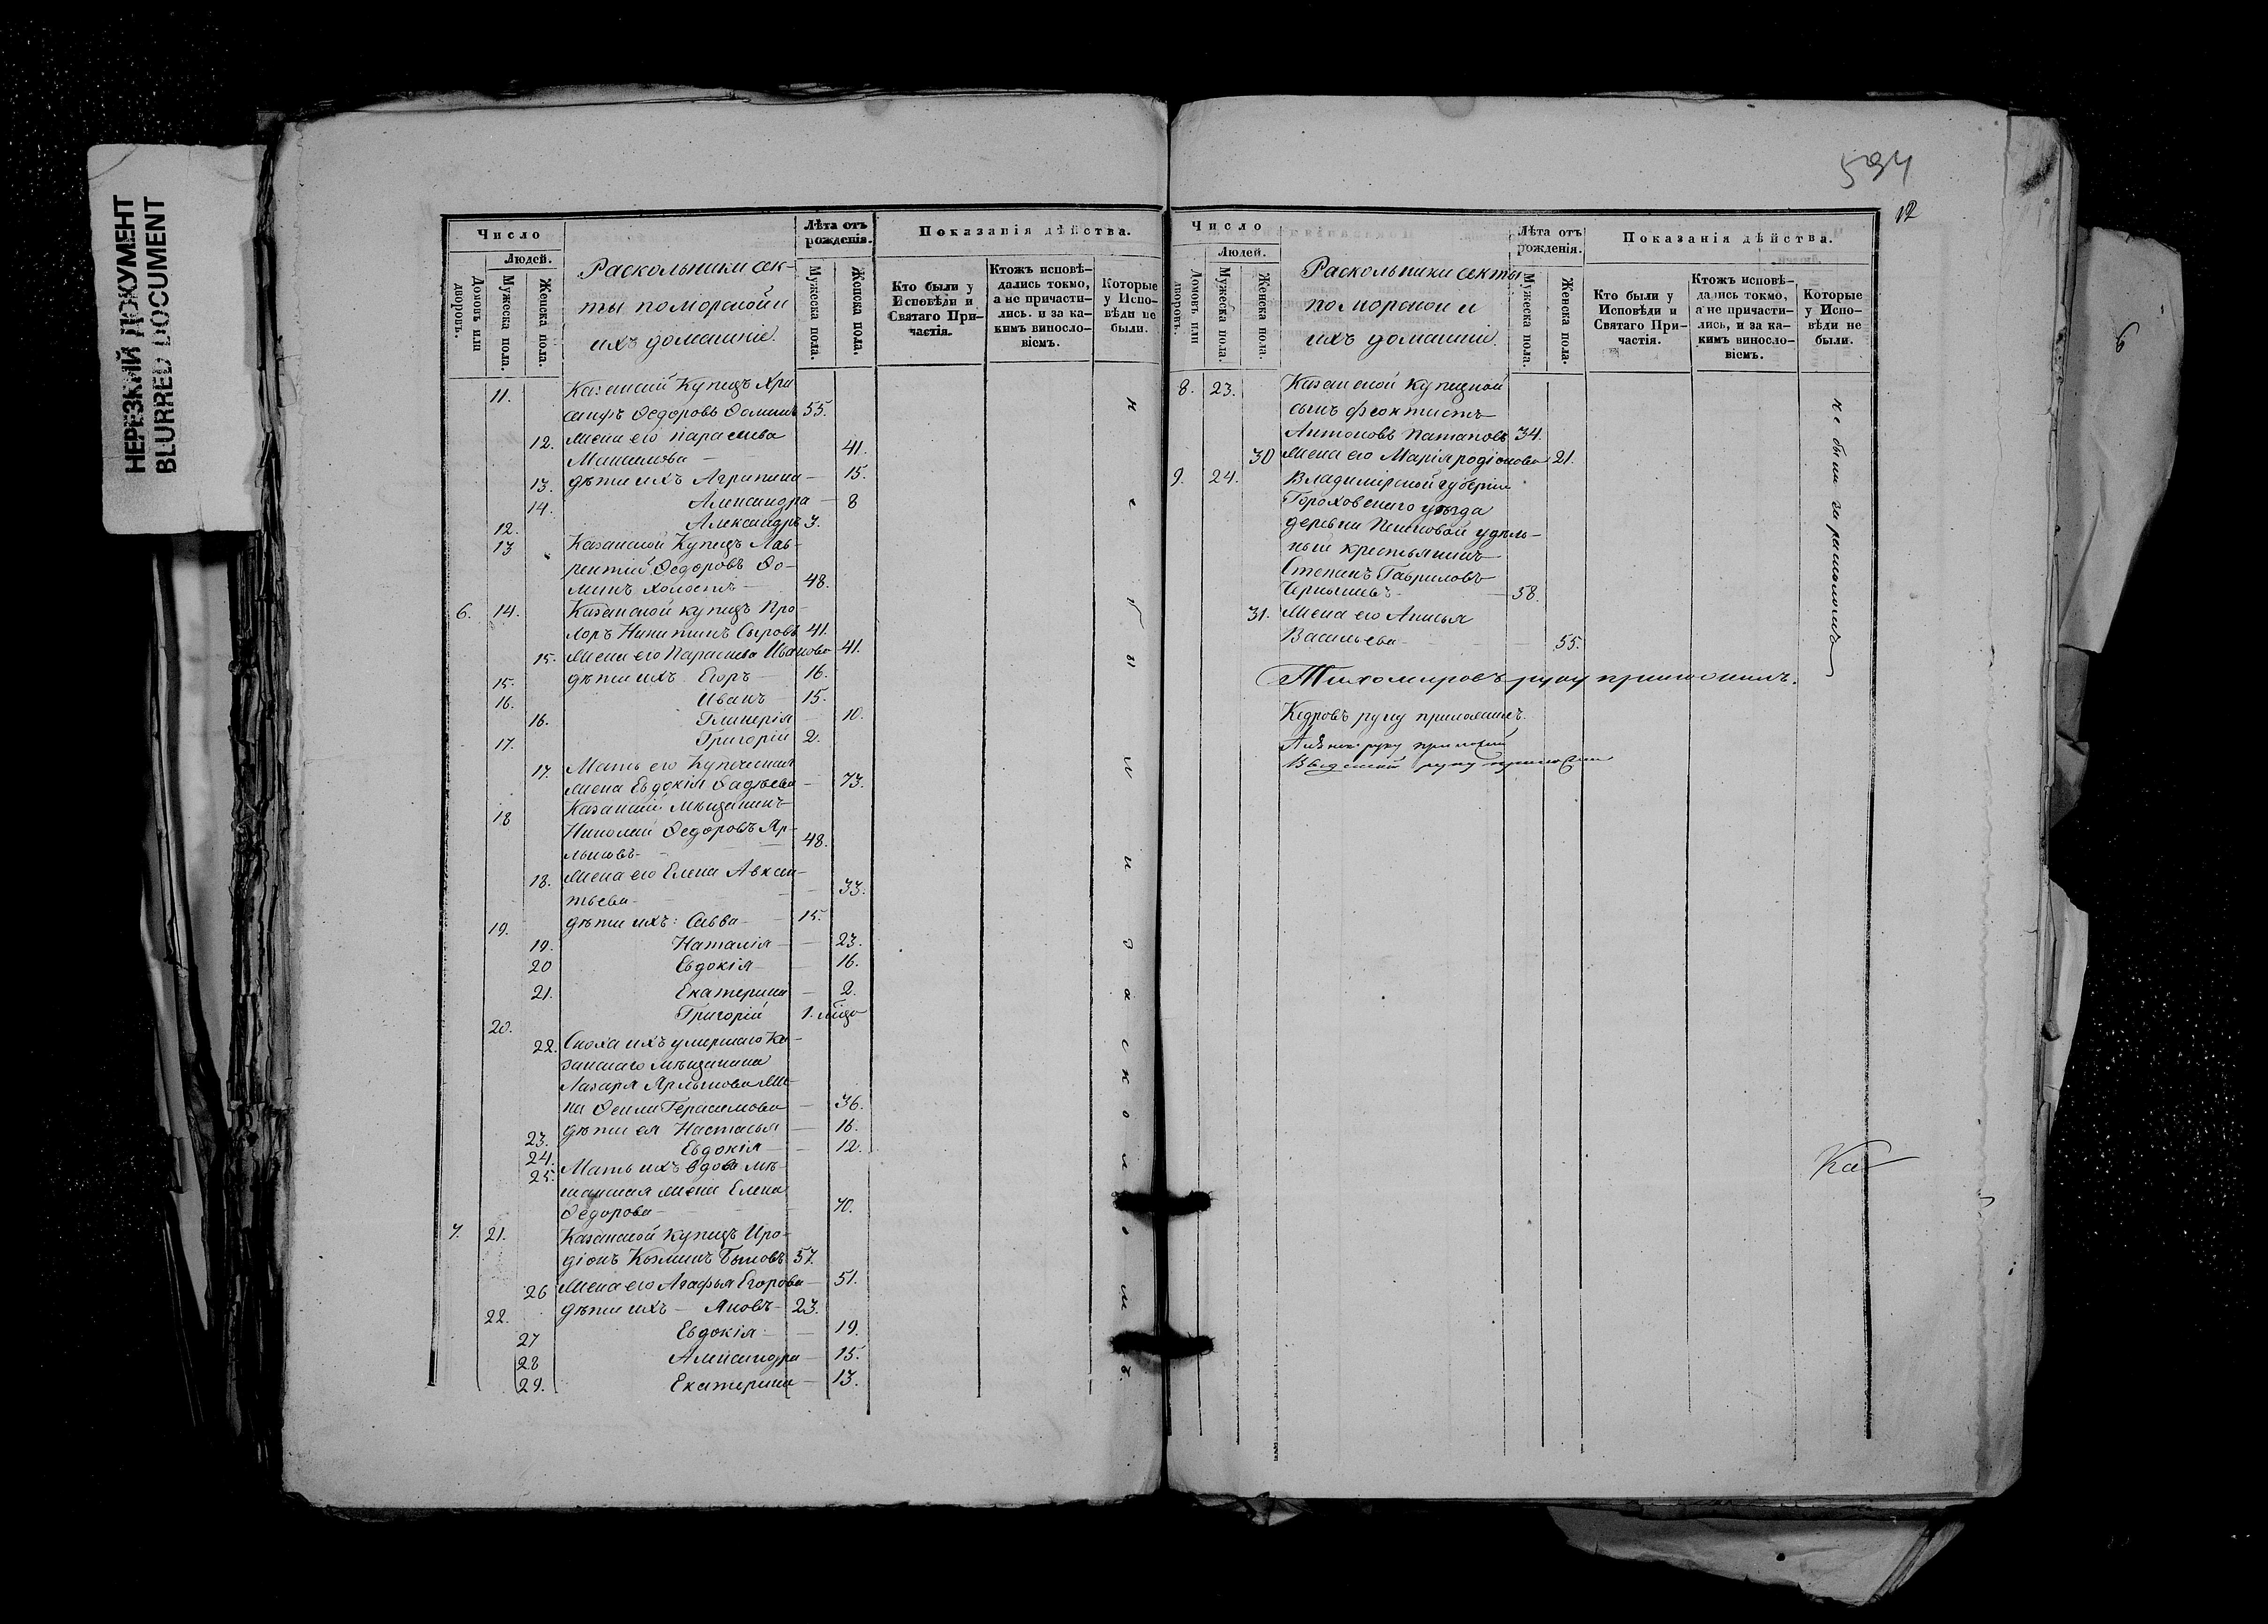 НЕРЕЗКИЙ ДОКУМЕНТ
BLURRED DOCUMENT
Число
Людей.
Домовъ или дворовъ.
Мужеска пола.
Женска пола.
Раскольники сек-
ты поморской и
ихъ домашніе.
Лѣта отъ рожденія.
Мужеска пола.
Женска пола.
Показанія дѣйства.
Кто были у Исповѣди и Святаго При-частія.
Ктожъ исповѣ-дались токмо, а не причасти-лись. и за ка-кимъ винносло-віемъ.
Которые у Испо-вѣди не были.
11. Казанскій Купецъ Хри
санфъ Ѳедоровъ Ѳоминъ 55.
12. Жена его Параскева
Максимова 41.
13. дѣти ихъ Агрипина 15.
14. Александра 8
12. Александръ 3.
13 Казанской Купецъ Лав-
рентій Ѳедоровъ Ѳо-
минъ холостъ 48.
6. 14. Казанской купецъ Про-
хоръ Никитинъ Сыровъ 41.
15. Жена его Параскева Иванова 41.
15. дѣти ихъ Егоръ 16.
16. Иванъ 15.
16. Гликерія 10.
17. Григорій 2.
17. Мать его Купеческая
жена Евдокія Фадѣева 73.
18 Казанскій мѣщанинъ
Николай Ѳедоровъ Яр-
лыковъ 48.
18. Жена его Елена Авксен-
тьева 33.
19. дѣти ихъ: Савва 15.
19. Наталія 23.
20 Евдокія 16.
21. Екатерина 2.
20. Григорій 1.
22. Сноха ихъ умершаго Ка-
занскаго мѣщанина
Лазаря Ярлыкова же-
на Герасимова 36.
23. дѣти ея Настасья 16.
24. Евдокія 12.
25. Мать ихъ вдова мѣ-
щанская жена Елена
Ѳедорова 70.
7. 21. Казанской купецъ Иро-
діонъ Козминъ Быковъ 57.
26 Жена его Агафья Егорова 51.
22. дѣти ихъ Яковъ 23.
27 Евдокія 19.
28 Александра 15.
29. Екатерина 13.
не были за расколомъ.
594
12
Число
Людей.
Домовъ или дворовъ.
Мужеска пола.
Женска пола.
Раскольники секты
поморской и
ихъ домашніе.
Лѣта отъ рожденія.
Мужеска пола.
Женска пола.
Показанія дѣйства.
Кто были у Исповѣди и Святаго При-частія.
Ктожъ исповѣ-дались токмо, а не причасти-лись, и за ка-кимъ винносло-віемъ.
Которые у Испо-вѣди не были.
8. 23. Казанской купецкой
сынъ Феоктистъ
Антоновъ Патаповъ 34.
30 Жена его Марія родіонова 21.
9. 24. Владимірской губерніи
Гороховскаго уѣзда
деревни удѣль-
ный крестьянинъ
Степанъ Гавриловъ
58.
31. Жена его Анисья
Васильева 55.
не были за расколомъ
Тихомировъ руку приложилъ.
Кедровъ руку приложилъ.
руку приложилъ
Введенскій руку приложилъ
Ка
6